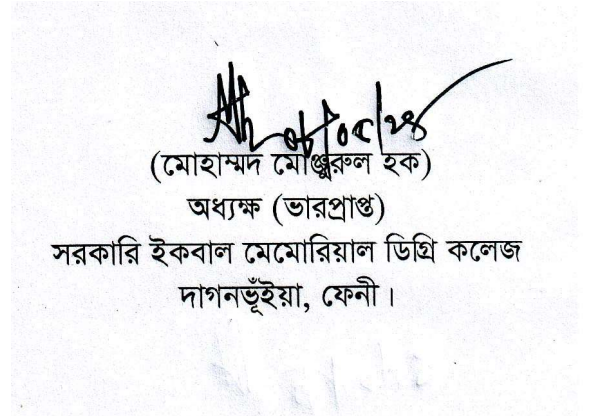 (মোহাম্মদ মোঞ্জুরুল হক)
অধ্যক্ষ (ভারপ্রাপ্ত)
সরকারি ইকবাল মেমোরিয়াল ডিগ্রি কলেজ
দাগনভূঁইয়া, ফেনী।